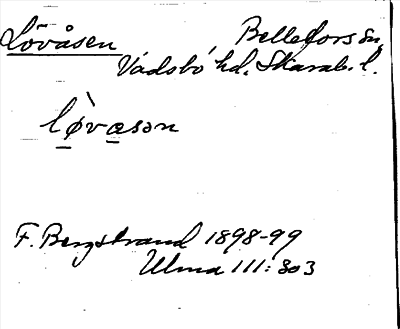 Lövåsen Bellefors sn,
Vadsbo hd. Skarab. l.
lø̀vasən
F. Bergstrand 1898-99
Ulma 111:303